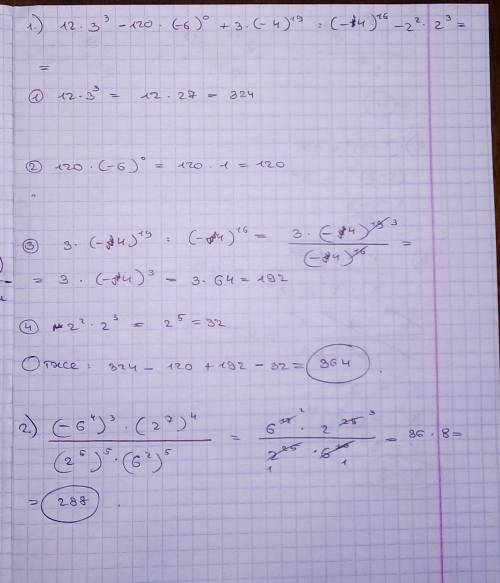 1.) 12 · 3³ - 120 · (-6)⁰ + 3 · (-4)¹⁹ : (-4)¹⁶ - 2² · 2³ =
=
① 12 · 3³ = 12 · 27 = 324
② 120 · (-6)⁰ = 120 · 1 = 120
③ 3 · (-4)¹⁹ : (-4)¹⁶ = 3 · (-4)¹⁹ ³ / (-4)¹⁶ =
= 3 · (-4)³ = 3 · 64 = 192
④ 2² · 2³ = 2⁵ = 32
Отже : 324 - 120 + 192 - 32 = 364 .
2) (-6⁴)³ · (2⁷)⁴ / (2⁵)⁵ · (6²)⁵ = 6¹² ² · 2²⁸ ³ / 2²⁵ 1 · 6¹⁰ 1 = 36 · 8 =
= 288 .